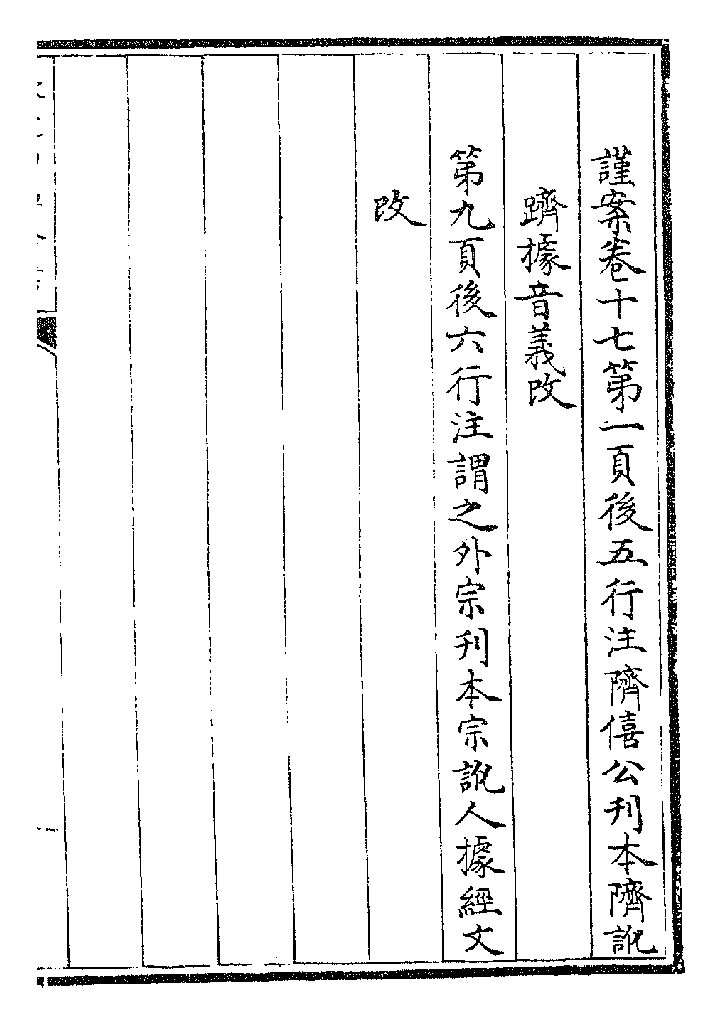 謹案卷十七第一頁後五行注隮僖公刊本隮訛
躋據音義改
第九頁後六行注謂之外宗刊本宗訛人據經文
改